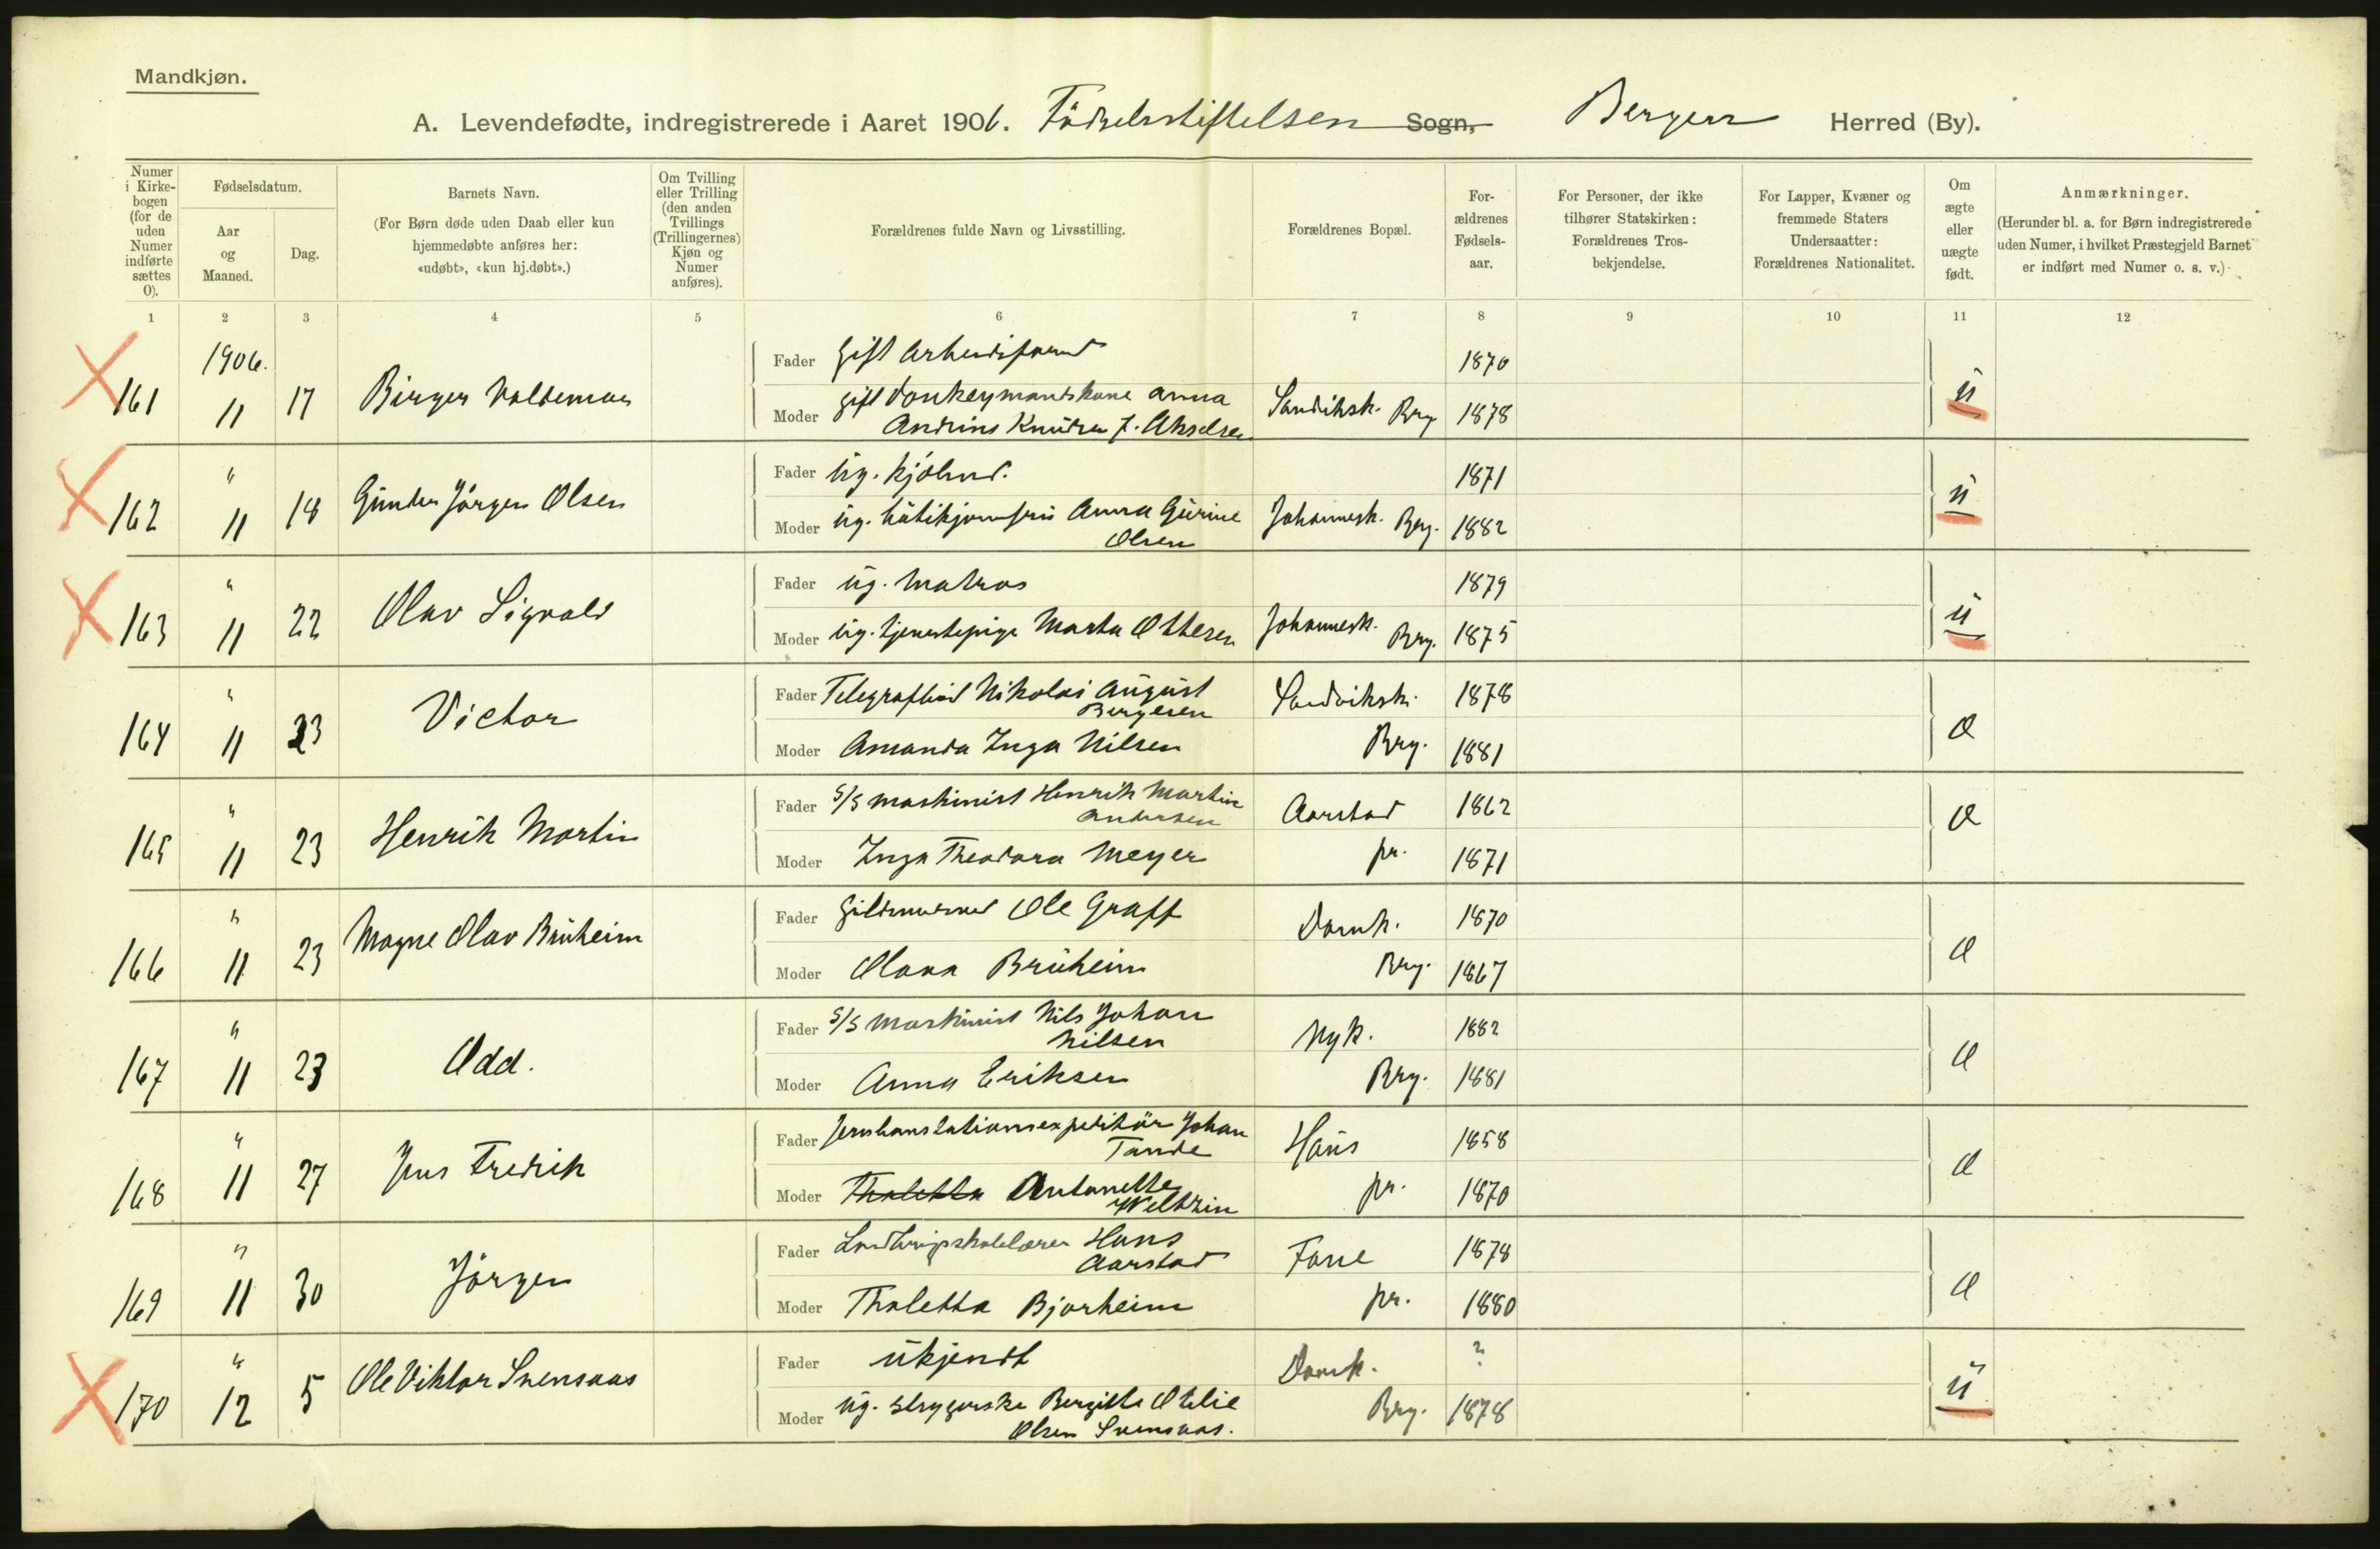 Mandkjøn.
A. Levendefødte, indregistrerede i Aaret 1906. Födselsstiftelsen Sogn, Bergen Herred (By).
Numer i Kirkebogen (for de uden Numer indførte sættes 0).
Fødselsdatum.
Aar og Maaned.
Dag.
Barnets Navn.
(For Børn døde uden Daab eller kun hjemmedøbte anføres her: «udøbt», «kun hj.døbt».)
Om Tvilling eller Trilling (den anden Tvillings (Trillingernes) Kjøn og Numer anføres).
Forældrenes fulde Navn og Livsstilling.
Forældrenes Bopæl.
Forældrenes Fødselsaar.
For Personer, der ikke tilhører Statskirken: Forældrenes Trosbekjendelse.
For Lapper, Kvæner og fremmede Staters Undersaatter: Forældrenes Nationalitet.
Om ægte eller uægte født.
Anmærkninger.
(Herunder bl. a. for Børn indregistrerede uden Numer, i hvilket Præstegjeld Barnet er indført med Numer o. s. v.)
1 2 3 4 5 6 7 8 9 10 11 12
1906.
Fader gift Arbeidsformd 1870
161 11 17 Birger Valdemar Moder gift donkeymandskone Anna Sandviksk. Brg. 1878 ü
Andrine Knudsen f. Akselsen
" Fader üg. kjölmd. 1871
162 11 18 Günder Jörgen Olsen Moder üg. bütikjomfrü Anna Gürine Johannesk. Brg. 1882 ü
Olsen
" Fader üg. Matros 1879
163 11 22 Olav Sigvald Moder üg. tjenestepige Marta Ottesen Johannesk. Brg. 1875 ü
" Fader Telegrafbud Nikolai Aügüst Sandviksk. 1878
Bergesen
164 11 23 Victor Moder Amanda Inga Nilsen Brg. 1881 Æ
" Fader S/S maskinist Henrik Martin Aarstad 1862
Andersen
165 11 23 Henrik Martin Moder Inga Theodora Meyer pr. 1871 Æ
" Fader Ole Graff Domk. 1870
166 11 23 Magne Olav Brüheim Moder Olava Brüheim Brg. 1867 Æ
" Fader S/S Maskinist Nils Johan Nyk. 1882
Nilsen
167 11 23 Odd. Moder Anna Eriksen Brg. 1881 Æ
" Fader Jernbanstationsexpeditör Johan Haüs 1858
Tande
168 11 27 Jens Fredrik Moder Thaletta Antonette pr. 1870 Æ
Weltzin
" Fader Landbrugsskolelærer Hans Fane 1878
Aarstad
169 11 30 Jörgen Moder Thaletta Bjorheim pr. 1880 Æ
" Fader ükjendt Domk. ?
170 12 5 Ole Viktor Svensaas Moder üg. strygerske Bergitte Otelie Brg. 1878 ü
Olsen Svensaas.